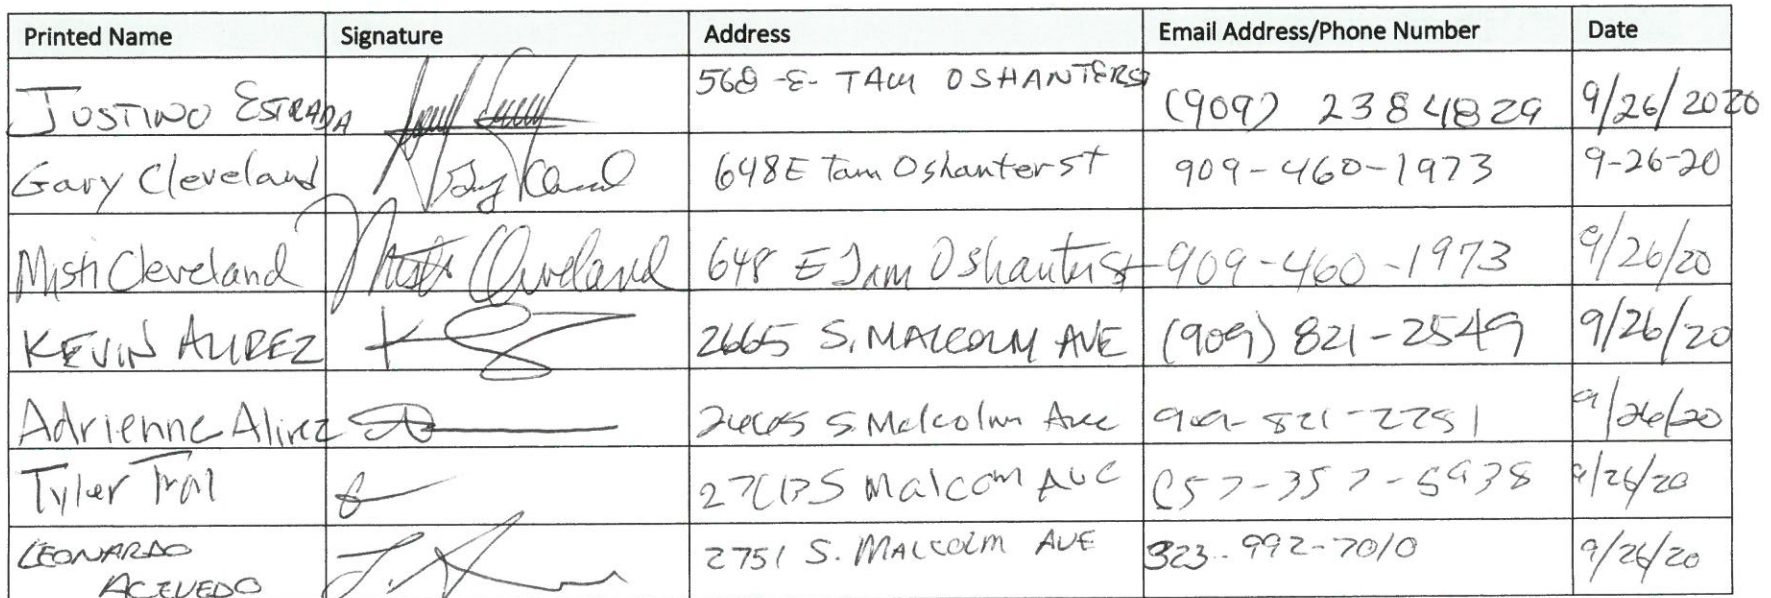 Printed Name Signature Address Email Address/Phone Number Date
JUSTINO ESTRADA 568 -E- TAM OSHANTER ST (909) 238 4829 9/26/2020
Gary Cleveland Gary Cleveland 648 E Tam Oshanter St 909-460-1973 9-26-20
Misti Cleveland Misti Cleveland 648 E Tam Oshanter St 909-460-1973 9/26/20
KEVIN ALIREZ 2665 S. MALCOLM AVE (909) 821-2549 9/26/20
Adrienne Alirez 2665 S Malcolm Ave 909-821-2281 9/26/20
Tyler S Malcom Ave 9/26/20
LEONARDO 2751 S. MALCOLM AVE 323-992-7010 9/26/20
ACEVEDO